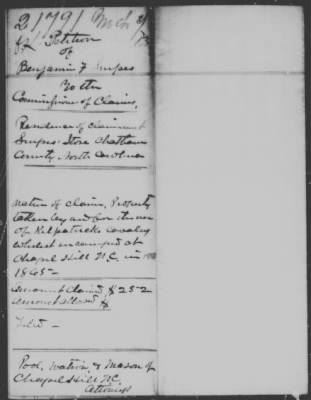 21791 Mch
Petition
of
Benjamin F Snipes
To the
Commissioners of Claims,
Residence of claimant
Snipes Store Chatham
County North Carolina
Nature of claim, Property
taken by and for the use
of Kilpatricks cavalry
whilst encamped at
Chapel Hill N.C. in
1865-
amount claimed, $252
amount allowed $
Filed -
Pool, Watson, & Mason of
Chapel Hill NC
Attorneys